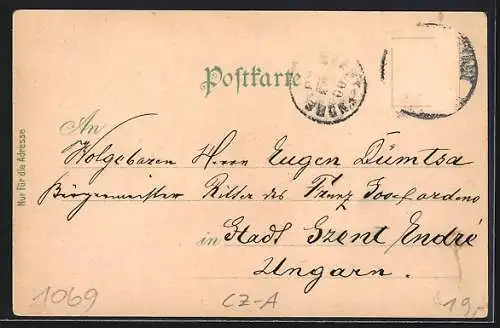 Postkarte
An
Wolgebaren Herrn Eugen Dümtsa
Bürgermeister Ritter des Franz Josefordens
in Stadt Szent Endré
Ungarn.
Nur für die Adresse
1069
CZ-A
19,-